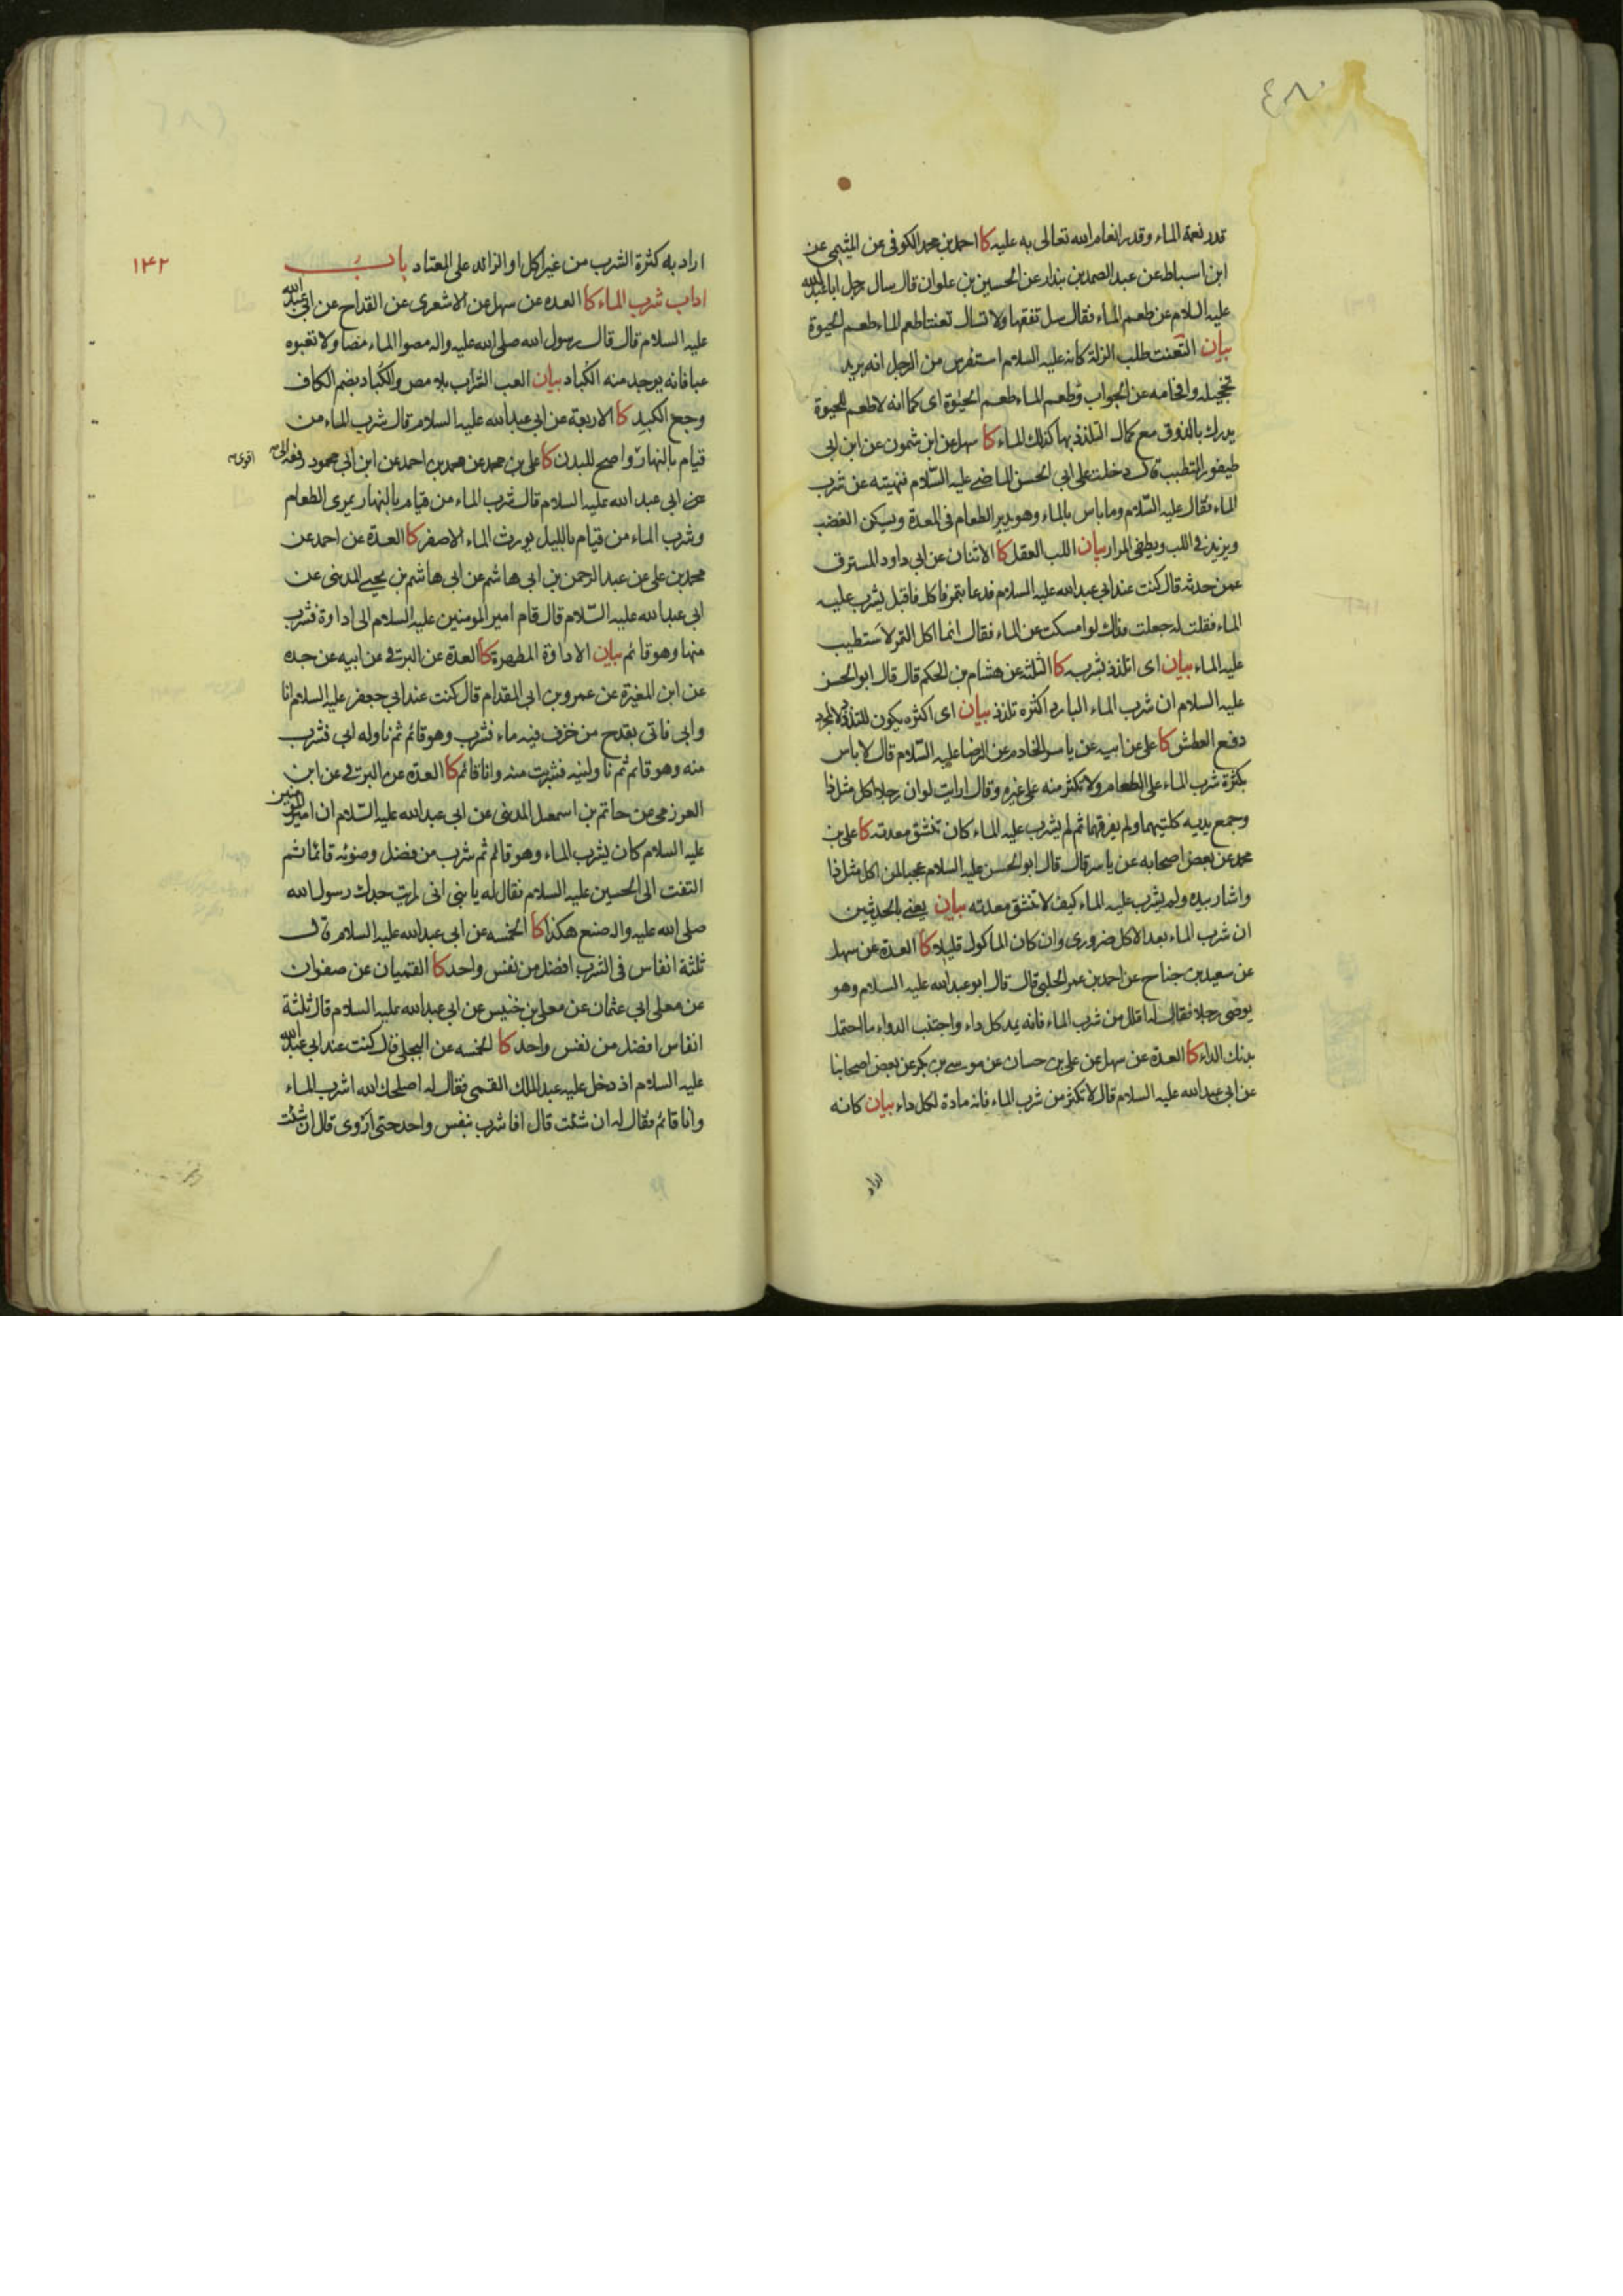 ٤٨٠
قدر نعمة الماء وقدر انعام الله تعالى به عليه كا احمد بن محمد الكوفى عن الميثمى عن
ابن اسباط عن عبد الصمد بن بندار عن الحسين بن علوان قال سال رجل ابا عبد الله
عليه السلام عن طعم الماء فقال سل تفقها ولا تسال تعنتا طعم الماء طعم الحيوة
بيان التعنت طلب الزلة كانه عليه السلام استفرس من الرجل انه يريد
تخجيله وافحامه عن الجواب وطعم الماء طعم الحيوة اى كما انه لا طعم للحيوة
يدرك بالذوق مع كمال التلذذ بها كذلك الماء كا سهل عن ابن شمون عن ابن ابى
طيفور المتطبب قال دخلت على ابى الحسن الماضى عليه السلام فنهيته عن شرب
الماء فقال عليه السلام وما باس بالماء وهو يدير الطعام فى المعدة ويسكن الغضب
ويزيد فى اللب ويطفى المرار بيان اللب العقل كا الاثنان عن ابى داود المسترق
عمن حدثه قال كنت عند ابى عبد الله عليه السلام فدعا بتمر فاكل فاقبل يشرب عليه
الماء فقلت له جعلت فداك لو امسكت عن الماء فقال انما اكل التمر لاستطيب
عليه الماء بيان اى اتلذذ بشربه كا الثلثة عن هشام بن الحكم قال قال ابو الحسن
عليه السلام ان شرب الماء البارد اكثره تلذذ بيان اى اكثره يكون للتلذذ لا لمجرد
دفع العطش كا على عن ابيه عن ياسر الخادم عن الرضا عليه السلام قال لا باس
بكثرة شرب الماء على الطعام ولا تكثر منه على غيره وقال ارايت لو ان رجلا اكل مثل ذا
وجمع يديه كلتيهما ولم يفرقهما ثم لم يشرب عليه الماء كان تنشق معدته كا على بن
محمد عن بعض اصحابه عن ياسر قال قال ابو الحسن عليه السلام عجبا لمن اكل مثل ذا
واشار بيده ولم يشرب عليه الماء كيف لا تنشق معدته بيان يعنى بالحديثين
ان شرب الماء بعد الاكل ضرورى وان كان الماكول قليلا كا العدة عن سهل
عن سعيد بن جناح عن احمد بن عمر الحلبى قال قال ابو عبد الله عليه السلام وهو
يوصى رجلا فقال له اقلل من شرب الماء فانه يمد كل داء واجتنب الدواء ما احتمل
بدنك الداء كا العدة عن سهل عن على بن حسان عن موسى بن بكر عن بعض اصحابنا
عن ابى عبد الله عليه السلام قال لا تكثر من شرب الماء فانه مادة لكل داء بيان كانه
اراد
١٤٢
اراد به كثرة الشرب من غير اكل او الزائد على المعتاد باب
اداب شرب الماء كا العده عن سهل عن الاشعرى عن القداح عن ابى عبد الله
عليه السلام قال قال رسول الله صلى الله عليه واله مصوا الماء مصا ولا تعبوه
عبا فانه يوجد منه الكباد بيان العب الشراب بلا مص والكباد بضم الكاف
وجع الكبد كا الاربعة عن ابى عبد الله عليه السلام قال شرب الماء من
قيام بالنهار واصح للبدن كا على بن محمد عن محمد بن احمد عن ابن ابى محمود رفعه الى
اقوى
عن ابى عبد الله عليه السلام قال شرب الماء من قيام بالنهار يمرى الطعام
وشرب الماء من قيام بالليل يورث الماء الاصفر كا العدة عن احمد عن
محمد بن على عن عبد الرحمن بن ابى هاشم عن ابى هاشم بن يحيى المدينى عن
ابى عبد الله عليه السلام قال قام امير المومنين عليه السلام الى اداوة فشرب
منها وهو قائم بيان الاداوة المطهرة كا العدة عن البرقى عن ابيه عن جده
عن ابن المغيرة عن عمرو بن ابى المقدام قال كنت عند ابى جعفر عليه السلام انا
وابى فاتى بقدح من خزف فيه ماء فشرب وهو قائم ثم ناوله ابى فشرب
منه وهو قائم ثم ناولنيه فشربت منه وانا قائم كا العدة عن البرقى عن ابن
العرزمى عن حاتم بن اسمعيل المدنى عن ابى عبد الله عليه السلام ان امير المومنين
عليه السلام كان يشرب الماء وهو قائم ثم شرب من فضل وضوئه قائما ثم
التفت الى الحسين عليه السلام فقال له يا بنى انى رايت جدك رسول الله
صلى الله عليه واله صنع هكذا كا الخمسه عن ابى عبد الله عليه السلام قال
ثلثة انفاس فى الشرب افضل من نفس واحد كا القميان عن صفوان
عن معلى ابى عثمان عن معلى بن خنيس عن ابى عبد الله عليه السلام قال ثلثة
انفاس افضل من نفس واحد كا الخمسه عن البجلى قال كنت عند ابى عبد الله
عليه السلام اذ دخل عليه عبد الملك القمى فقال له اصلحك الله اشرب الماء
وانا قائم فقال له ان شئت قال افاشرب بنفس واحد حتى اروى قال ان شئت